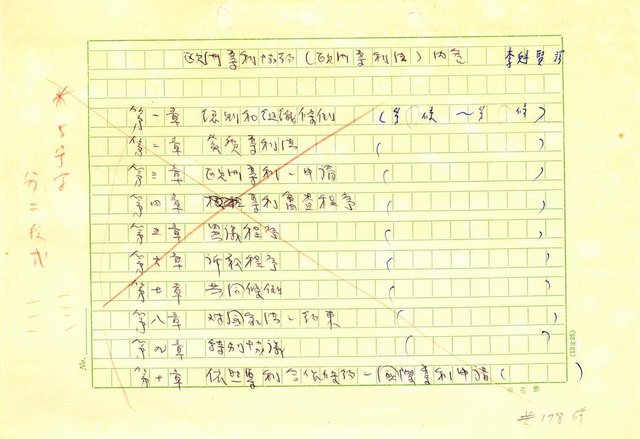 欧洲專利協約(欧洲專利法)内容 李魁賢譯
第一章 總則和組織條例 (第 條～第 條)
第二章 實質專利法 ( )
第三章 欧洲專利之申請 ( )
第四章 專利審查程序 ( )
第五章 異議程序 ( )
第六章 訴訟程序 ( )
第七章 共同條例 ( )
第八章 對國家法之約束 ( )
第九章 特別協議 ( )
第十章 依照專利合作條約之國際專利申請 ( )
No.
(12x25)
共178條
*5号字
分二段式